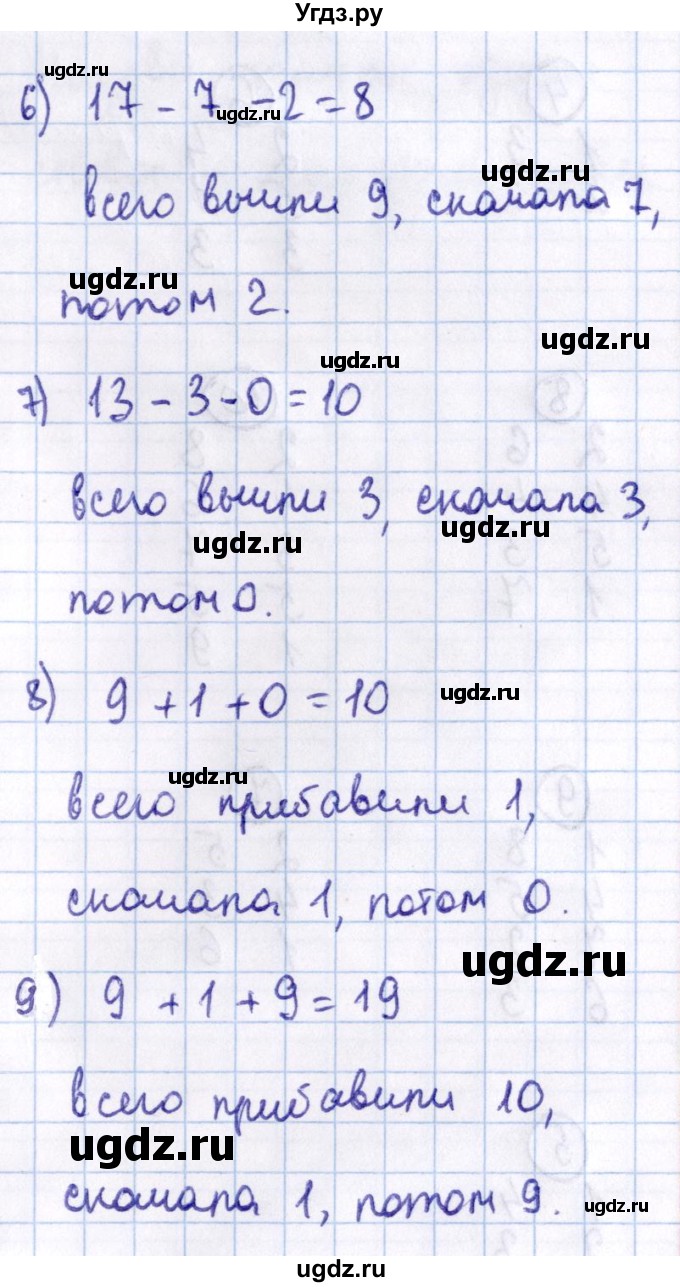 Угдз.ру
ugdz.ru
6) 17 - 7 - 2 = 8
ugdz.ru
ugdz.ru
всего вычли 9, сначала 7,
ugdz.ru
потом 2.
ugdz.ru
ugdz.ru
7) 13 - 3 - 0 = 10
всего вычли 3, сначала 3,
ugdz.ru
ugdz.ru
потом 0.
8) 9 + 1 + 0 = 10
ugdz.ru
ugdz.ru
всего прибавили 1,
сначала 1, потом 0.
ugdz.ru
9) 9 + 1 + 9 = 19
всего прибавили 10,
ugdz.ru
сначала 1, потом 9.
ugdz.ru
ugdz.ru